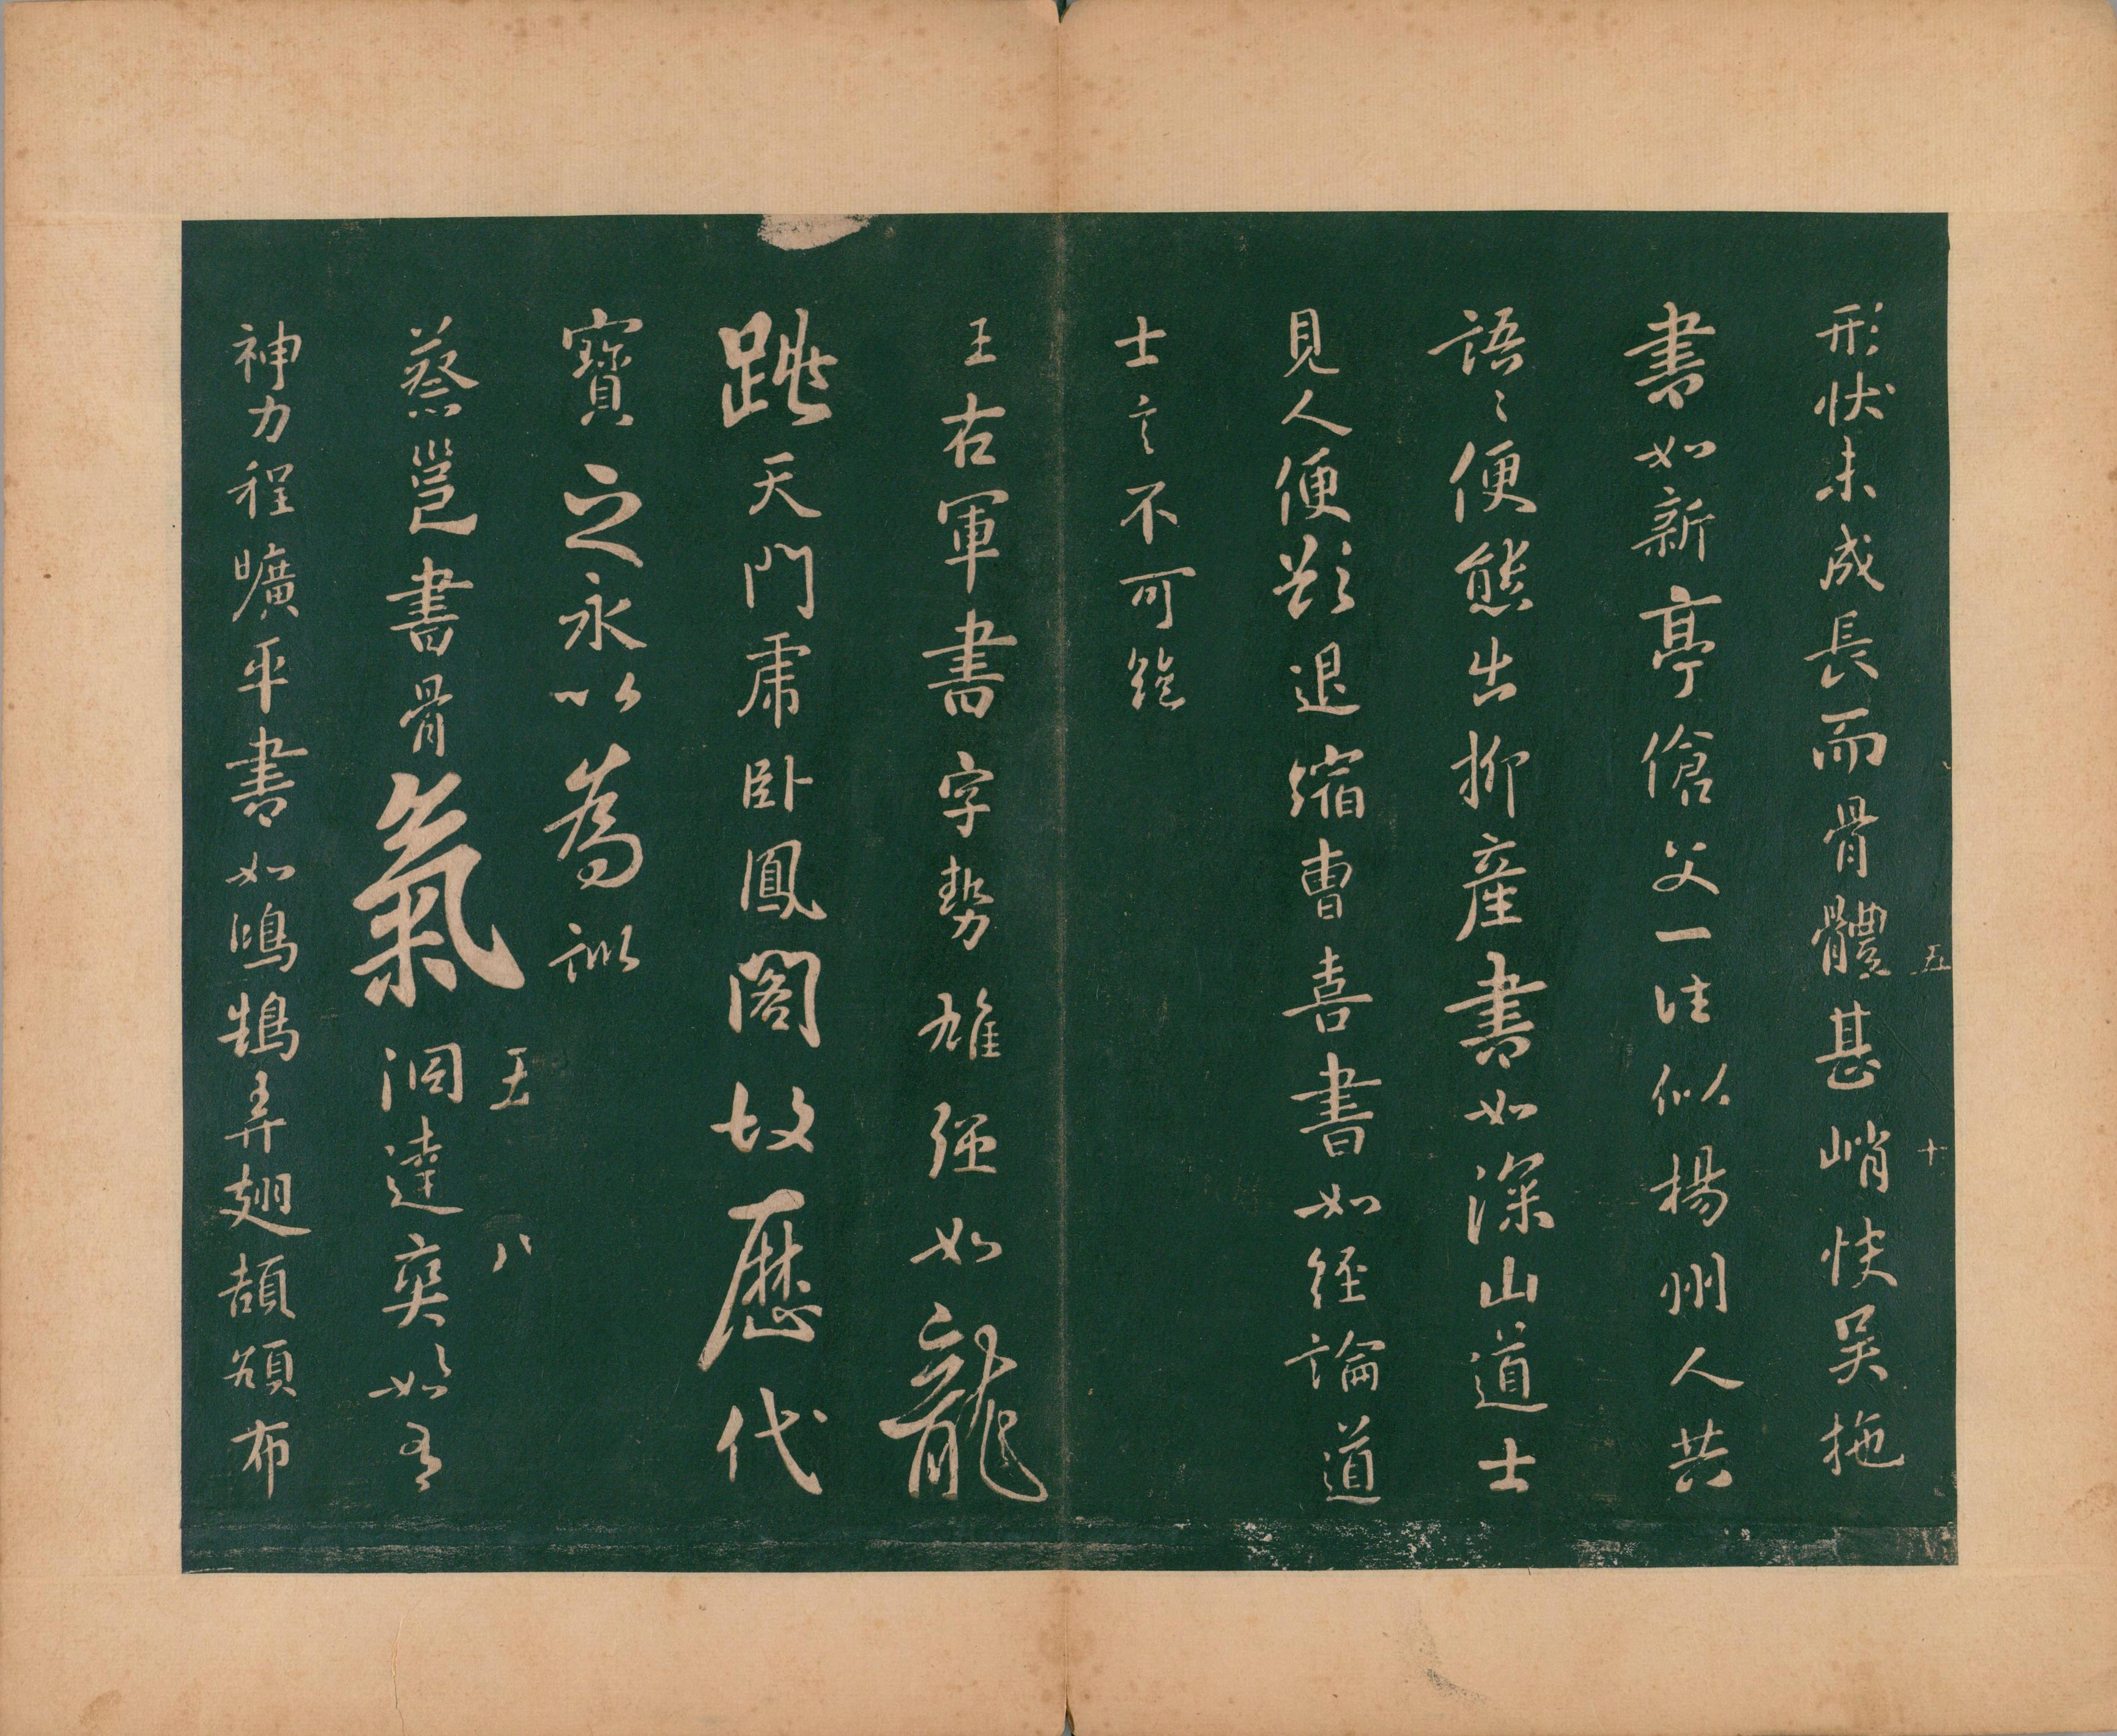 形状未成長而骨體甚峭快吴拖
書如新亭傖父一往似楊州人共
語〻便態出柳產書如深山道士
見人便欲退縮曹喜書如経論道
士言不可絶
王右軍書字勢雄強如龍
跳天門虎卧鳳閣故歷代
寶之永以為訓
蔡邕書骨氣洞達爽如有
神力程曠平書如鴻鵠弄翅頡頏布
五 十
五 八